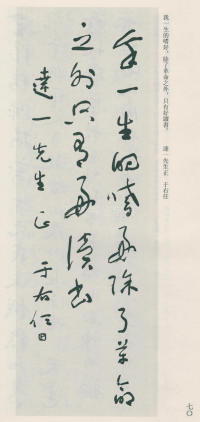 我一生的嗜好，除了革命之外，只有好讀書。　達一先生正　于右任
我一生的嗜好除了革命
之外只有好讀書
達一先生正　于右任
七〇